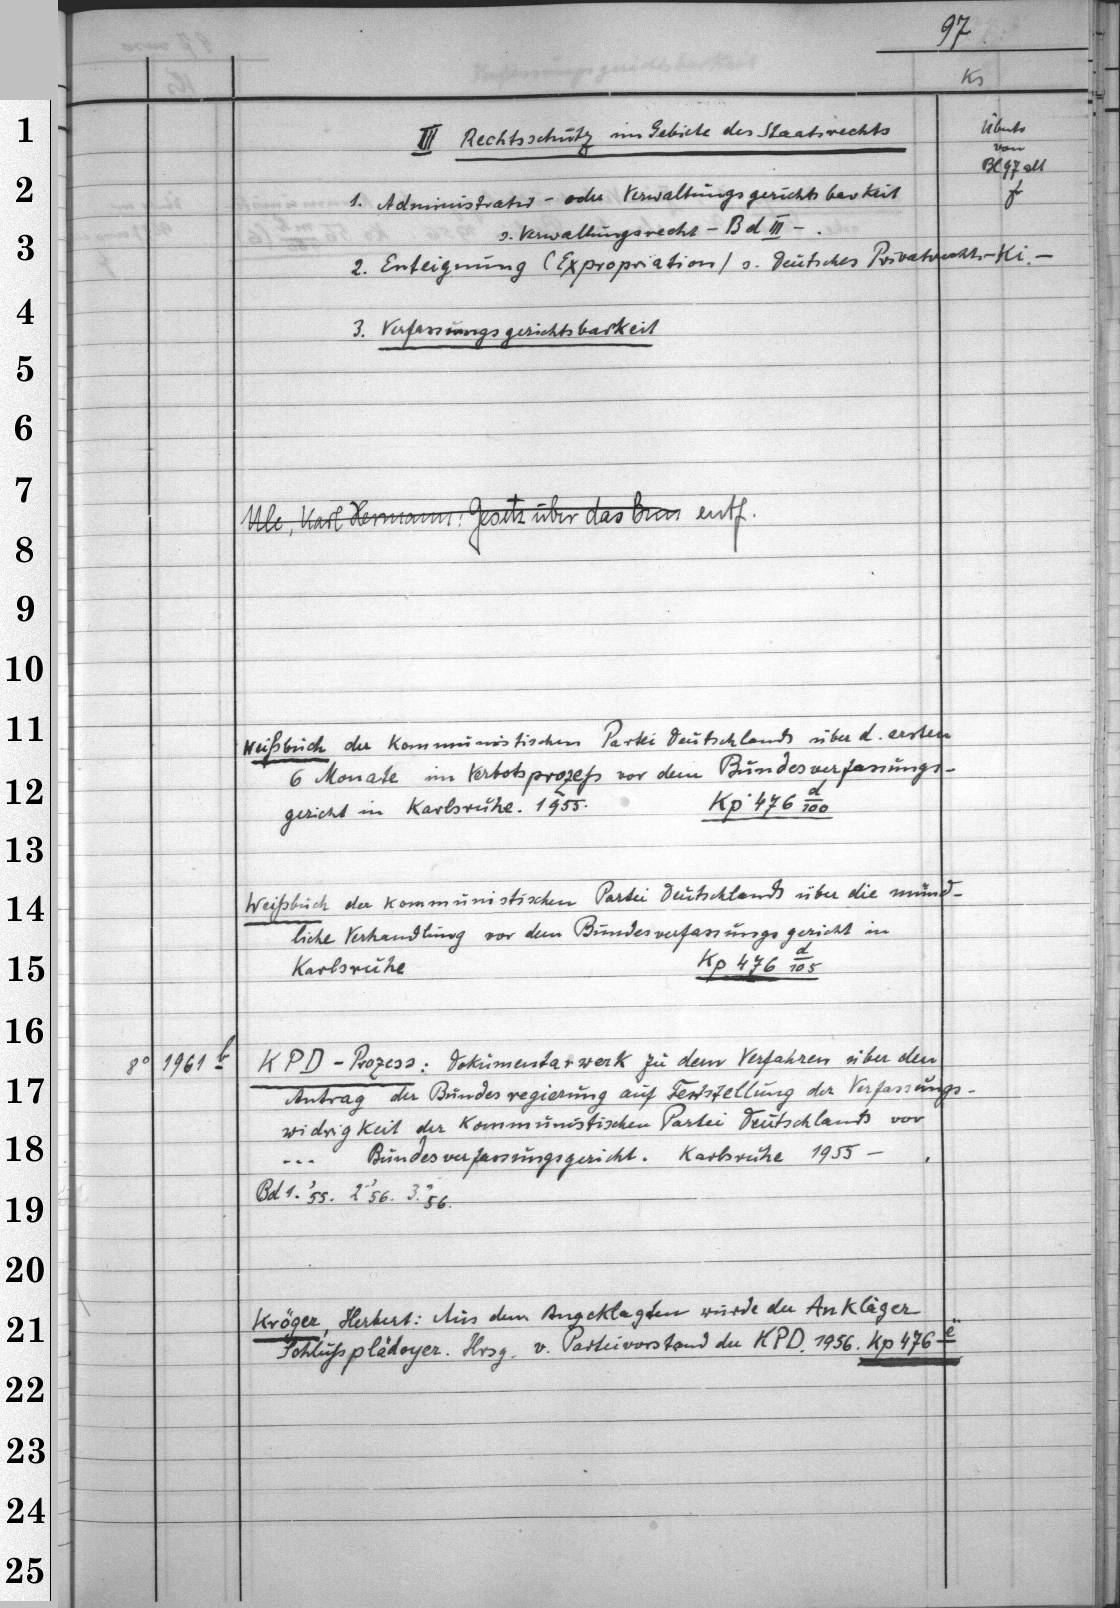 97
Ks
1
III Rechtsschutz im Gebiete des Staatsrechts
Übertr
von
Bl 97 alt
2
1. Administrativ- oder Verwaltungsgerichtsbarkeit
s. Verwaltungsrecht - Bd III - .
3
2. Enteignung (Expropriation) s. Deutsches Privatrechts-Ki. -
4
3. Verfassungsgerichtsbarkeit
5
6
7
Ule, Karl Hermann: Gesetz über das Bun entf.
8
9
10
11
Weißbuch der Kommunistischen Partei Deutschlands über d. ersten
6 Monate im Verbotsprozess vor dem Bundesverfassungs-
12
gericht in Karlsruhe. 1955. Kp 476 d/100
13
14
Weißbuch der kommunistischen Partei Deutschlands über die münd-
liche Verhandlung vor dem Bundesverfassungsgericht in
15
Karlsruhe Kp 476 d/105
16
8° 1961 b KPD-Prozess: Dokumentarwerk zu dem Verfahren über den
17
Antrag der Bundesregierung auf Feststellung der Verfassungs-
widrigkeit der Kommunistischen Partei Deutschlands vor
18
--- Bundesverfassungsgericht. Karlsruhe 1955 - .
19
Bd 1. '55. 2 '56. 3. '56.
20
21
Kröger, Herbert: Aus dem Angeklagten wurde der Ankläger
Schlußplädoyer. Hrsg. v. Parteivorstand der KPD. 1956. Kp 476 e
22
23
24
25